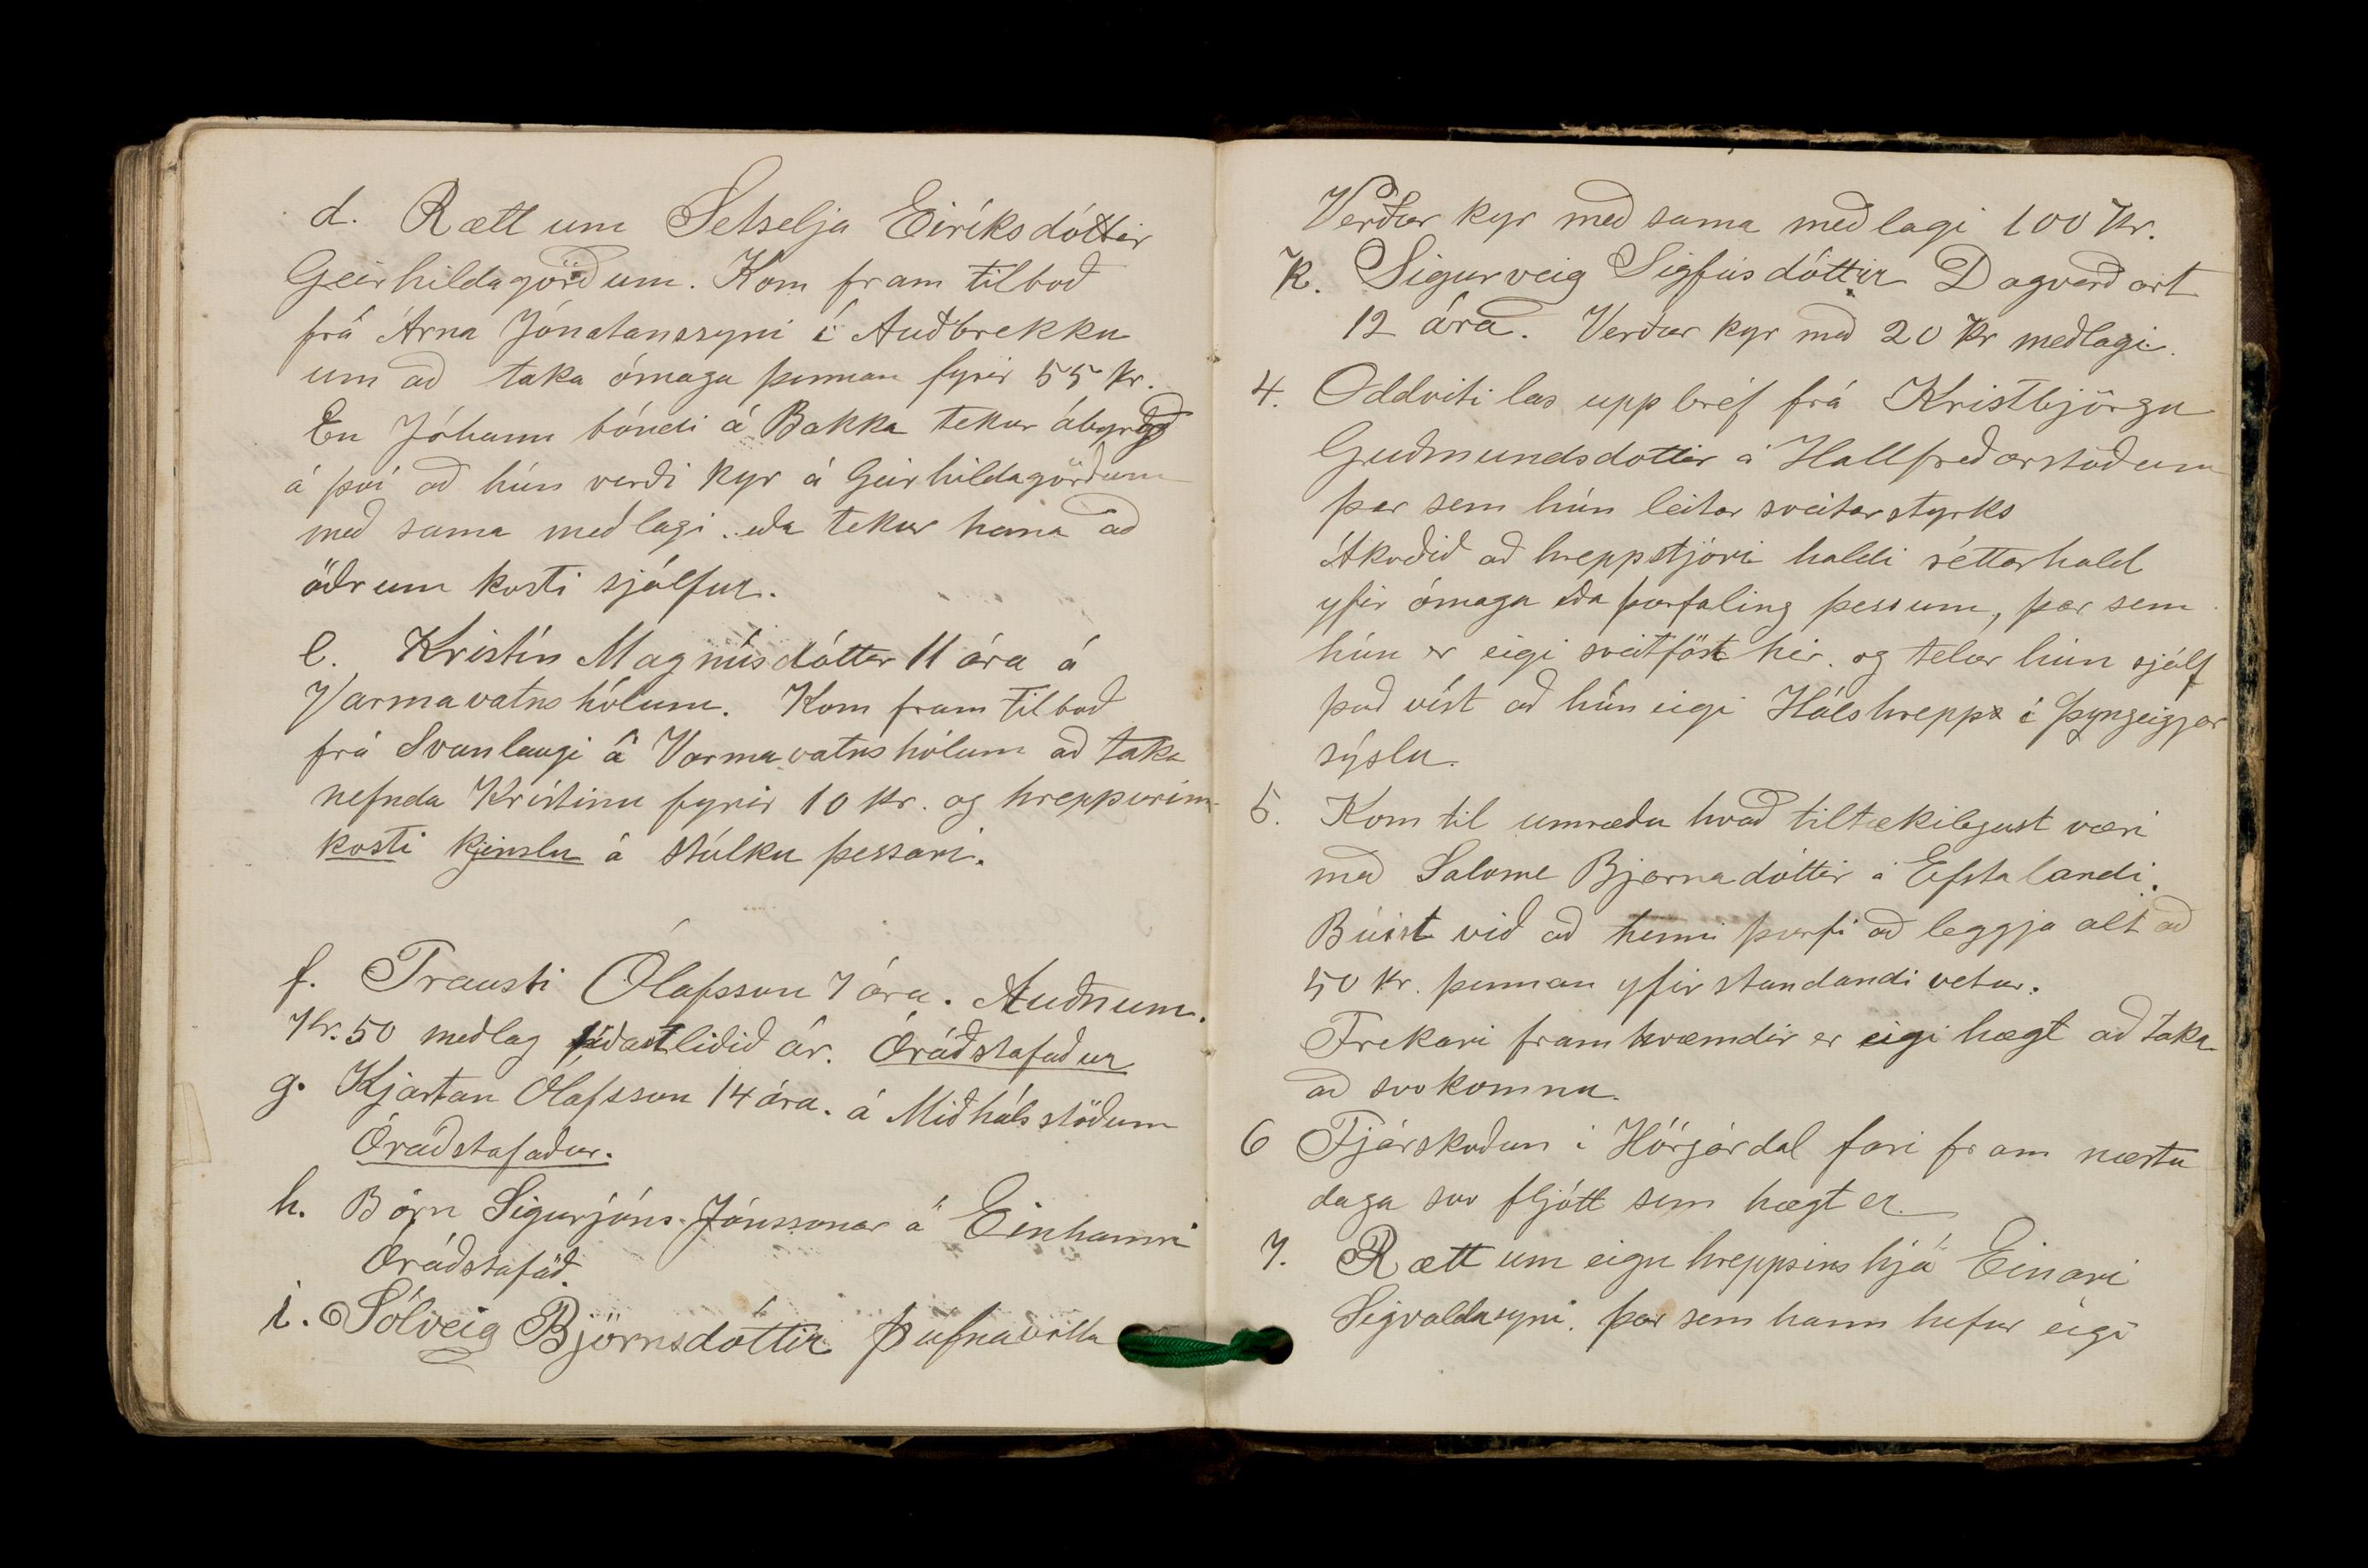 d. Rætt um Setselja Eiríksdóttir
Geirhildagörðum. Kom fram tilboð
frá Árna Jónatanssyni í Auðbrekku
um að taka ómaga þennan fyrir 55 kr.
En Jóhann bóndi á Bakka tekur ábyrgð
á því að hún verði kyr á Geirhildagörðum
með sama meðlagi. eða tekur hana að
öðrum kosti sjálfur.
e. Kristín Magnúsdóttir 11 ára á
Varmavatnshólum. Kom fram tilboð
frá Svanlaugi á Varmavatnshólum að taka
nefnda Kristínu fyrir 10 kr. og hreppurinn
kosti kjenslu á stúlku þessari.
f. Trausti Ólafsson 7 ára. Auðnum.
Kr. 50 meðlag síðastliðið ár. Óráðstafaður
g. Kjartan Ólafsson 14 ára. á Miðhálsstöðum
Óráðstafaður.
h. Börn Sigurjóns Jónssonar á Einhamri
Óráðstafað.
i. Sólveig Björnsdóttir Þúfnavöllu
Verður kyr með sama meðlagi 100 Kr.
k. Sigurveig Sigfúsdóttir Dagverðart
12 ára. Verður kyr með 20 kr meðlagi.
4. Oddviti las upp bréf frá Kristbjörgu
Guðmundsdottir á Hallfreðarstöðum
þar sem hún leitar sveitarstyrks
Ákveðið að hreppstjóri haldi réttarhald
yfir ómaga eða þurfaling þessum, þar sem
hún er eigi sveitföst hér. og telur hún sjálf
það víst að hún eigi Hálshrepp í Þyngeigjar
sýslu.
5. Kom til umræðu hvað tiltækilegust væri
með Salome Bjarnadóttir á Efstalandi.
Búist við að henni þurfi að leggja alt að
50 kr. þennan yfirstandandi vetur.
Frekari framkvæmdir er eigi hægt að taka
að svo komnu.
6 Fjárskoðun í Hörgárdal fari fram næstu
daga svo fljótt sem hægt er.
7. Rætt um eign hreppsins hjá Einari
Sigvaldasyni. þar sem hann hefur eigi